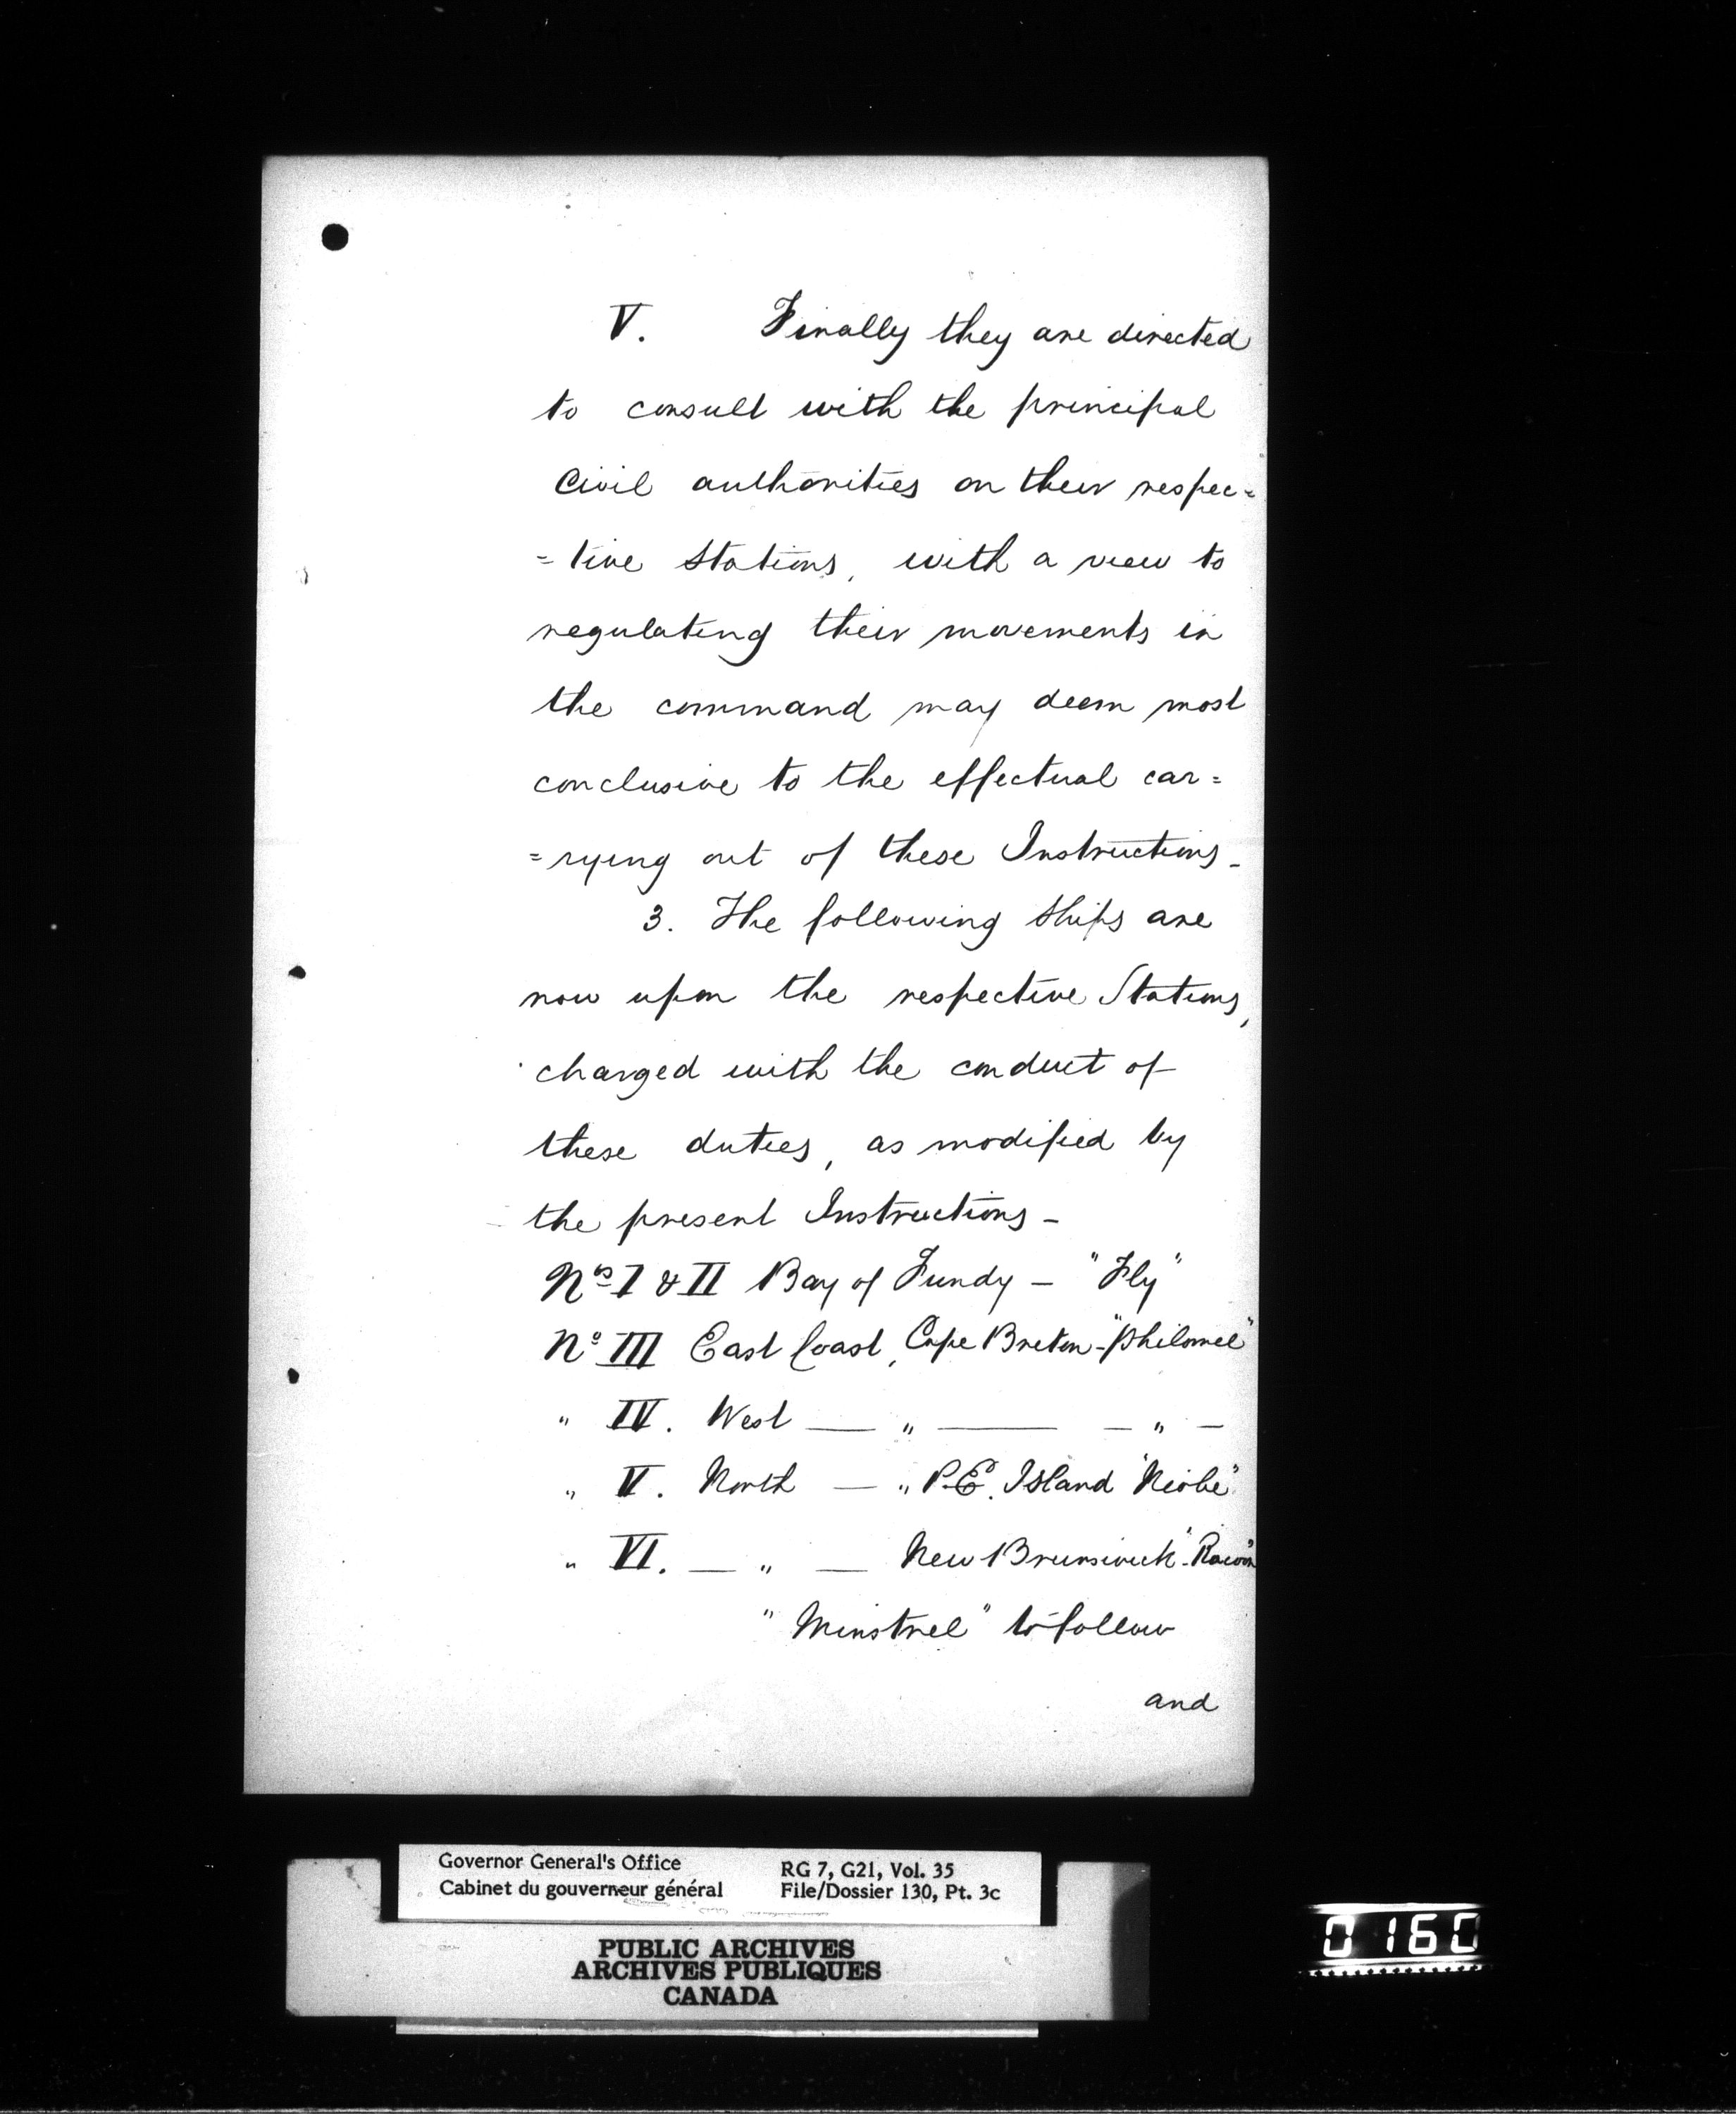 V. Finally they are directed
to consult with the principal
Civil authorities on their respec=
=tive Stations, with a view to
regulating their movements in
the command may deem most
conclusive to the effectual car=
=rying out of these Instructions_
3. The following Ships are
now upon the respective Stations,
charged with the conduct of
these duties, as modified by
the present Instructions _
Nos I & II Bay of Fundy _ "Fly"
No III East Coast, Cape Breton - "Philomel"
" IV. West — " — — " —
" V. North — " P.E. Island "Niobe"
" VI. — " — New Brunswick - "Racoon"
"Minstrel" to follow
and
Governor General's Office
Cabinet du gouverneur général
RG 7, G21, Vol. 35
File/Dossier 130, Pt. 3c
PUBLIC ARCHIVES
ARCHIVES PUBLIQUES
CANADA
0160